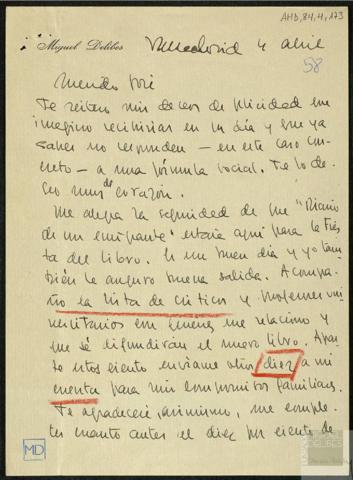 AMD, 84, 4, 173
Miguel Delibes
Valladolid 4 abril
58
Querido José
Te reitero mis deseos de felicidad que
imagino recibirías en su día y que ya
sabes no responden — en este caso con-
creto — a una fórmula social. Te lo de-
seo muy de corazón.
Me alegra la seguridad de que "Diario
de un emigrante" estará aquí para la Fies-
ta del Libro. Es un buen día y yo tam-
bién le auguro buena salida. Acompa-
ño la lista de críticos y profesores uni-
versitarios con quienes me relaciono y
que sé difundirán el nuevo libro. Apar-
te estos ciento envíame otros diez a mi
cuenta para mis compromisos familiares.
Te agradeceré, asimismo, me comple-
tes cuanto antes el diez por ciento de
MD